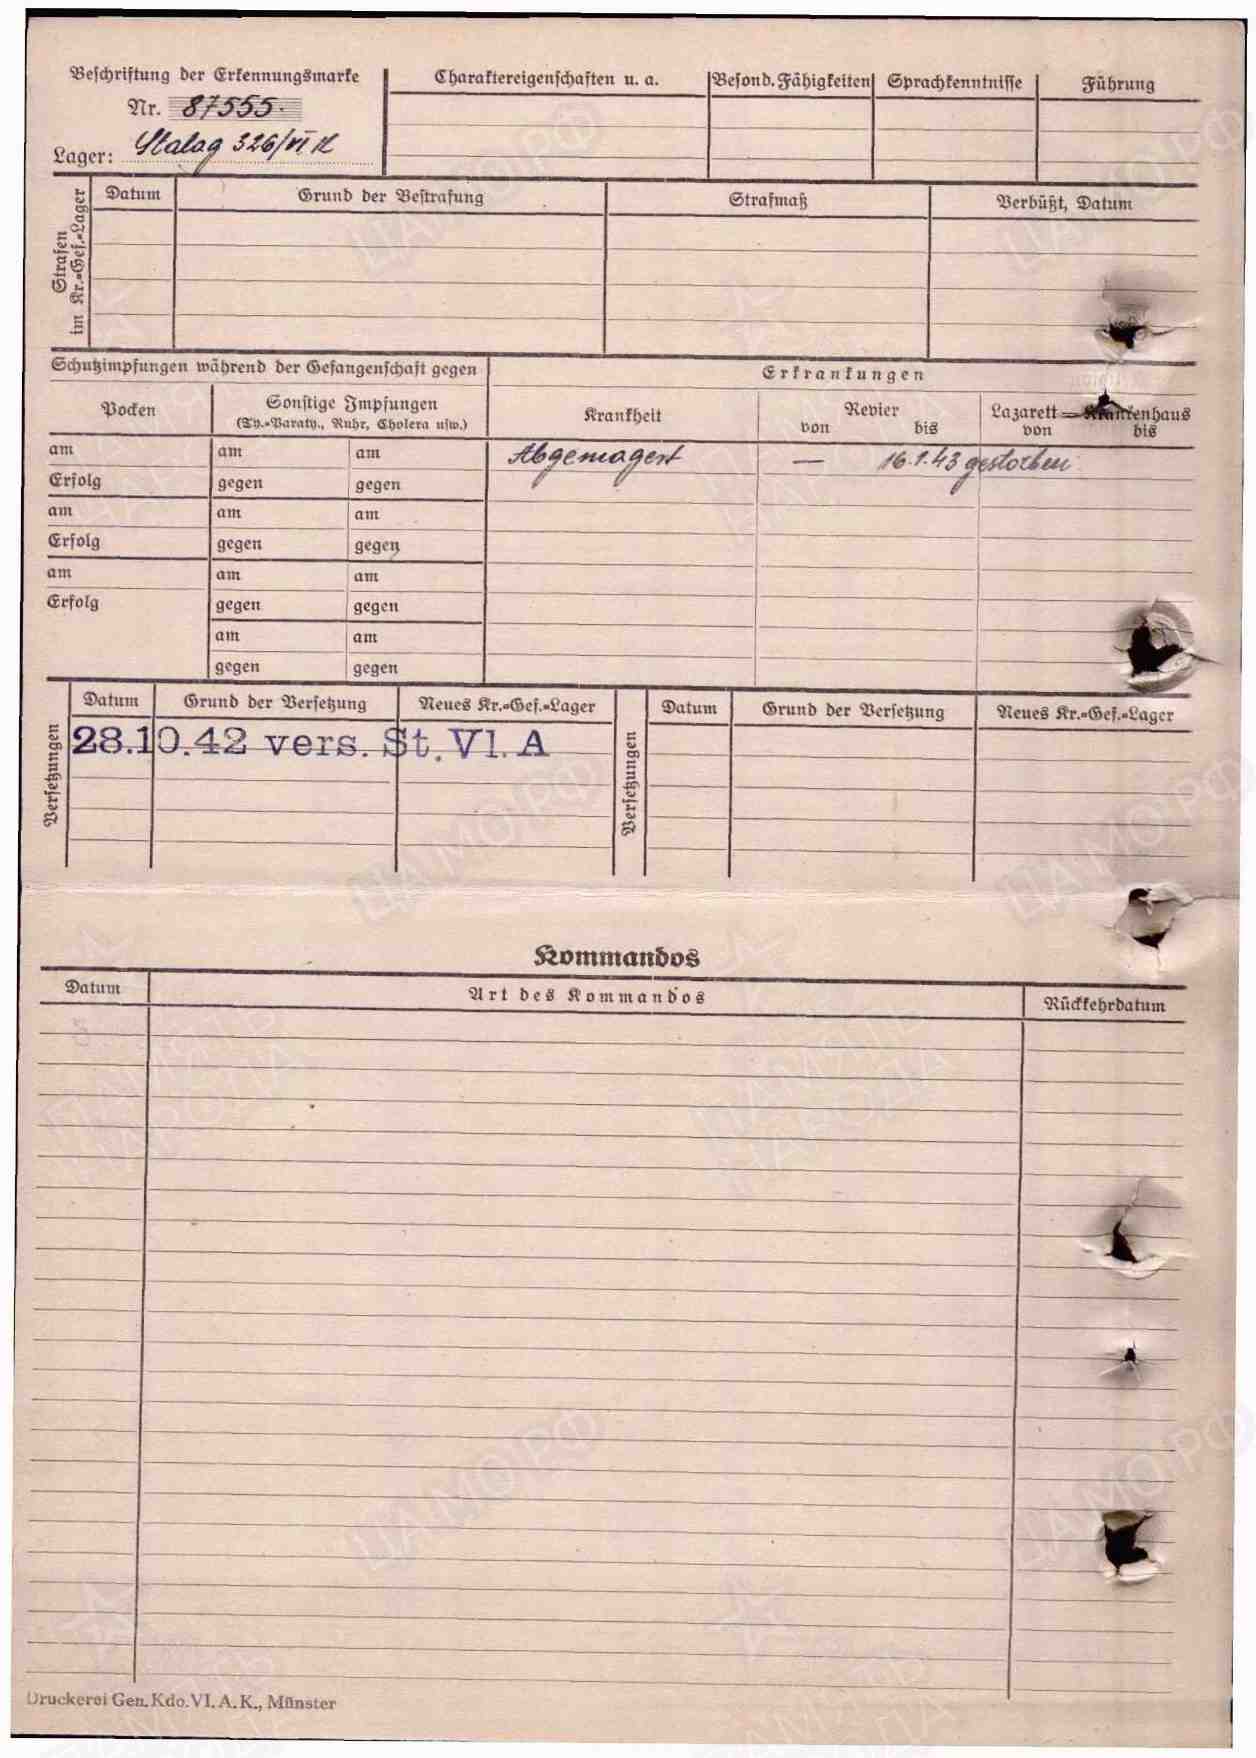 Beschriftung der Erkennungsmarke
Nr. 87555.
Lager: Stalag 326/VI K
Charaktereigenschaften u. a.
Besond. Fähigkeiten
Sprachkenntnisse
Führung
Strafen im Kr.=Gef.=Lager
Datum
Grund der Bestrafung
Strafmaß
Verbüßt, Datum
Schutzimpfungen während der Gefangenschaft gegen
Erkrankungen
Pocken
Sonstige Impfungen
(Ty.=Paraty., Ruhr, Cholera usw.)
Krankheit
Revier
von bis
Lazarett — Krankenhaus
von bis
am am am
Abgemagert — 16.1.43 gestorben
Erfolg gegen gegen
am am am
Erfolg gegen gegen
am am am
Erfolg gegen gegen
am am
gegen gegen
Versetzungen
Datum Grund der Versetzung Neues Kr.=Gef.=Lager
28.10.42 vers. St. VI. A
Versetzungen
Datum Grund der Versetzung Neues Kr.=Gef.=Lager
Kommandos
Datum Art des Kommandos Rückkehrdatum
Druckerei Gen. Kdo. VI. A. K., Münster
ЦАМО РФ
ПАМЯТЬ НАРОДА